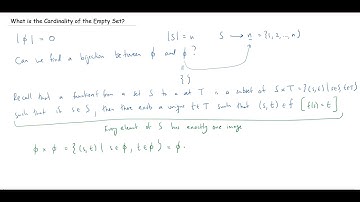 What is the Cardinality of the Empty Set?
|∅| = 0 |S| = n S → n = {1, 2, ..., n}
Can we find a bijection between ∅ and ∅ ?
{ }
Recall that a function f from a set S to a set T is a subset of S×T = {(s,t) | s∈S, t∈T}
such that if s∈S, then there exists a unique t∈T such that (s,t)∈f [f(s)=t]
Every element of S has exactly one image
∅ × ∅ = {(s,t) | s∈∅, t∈∅} = ∅.